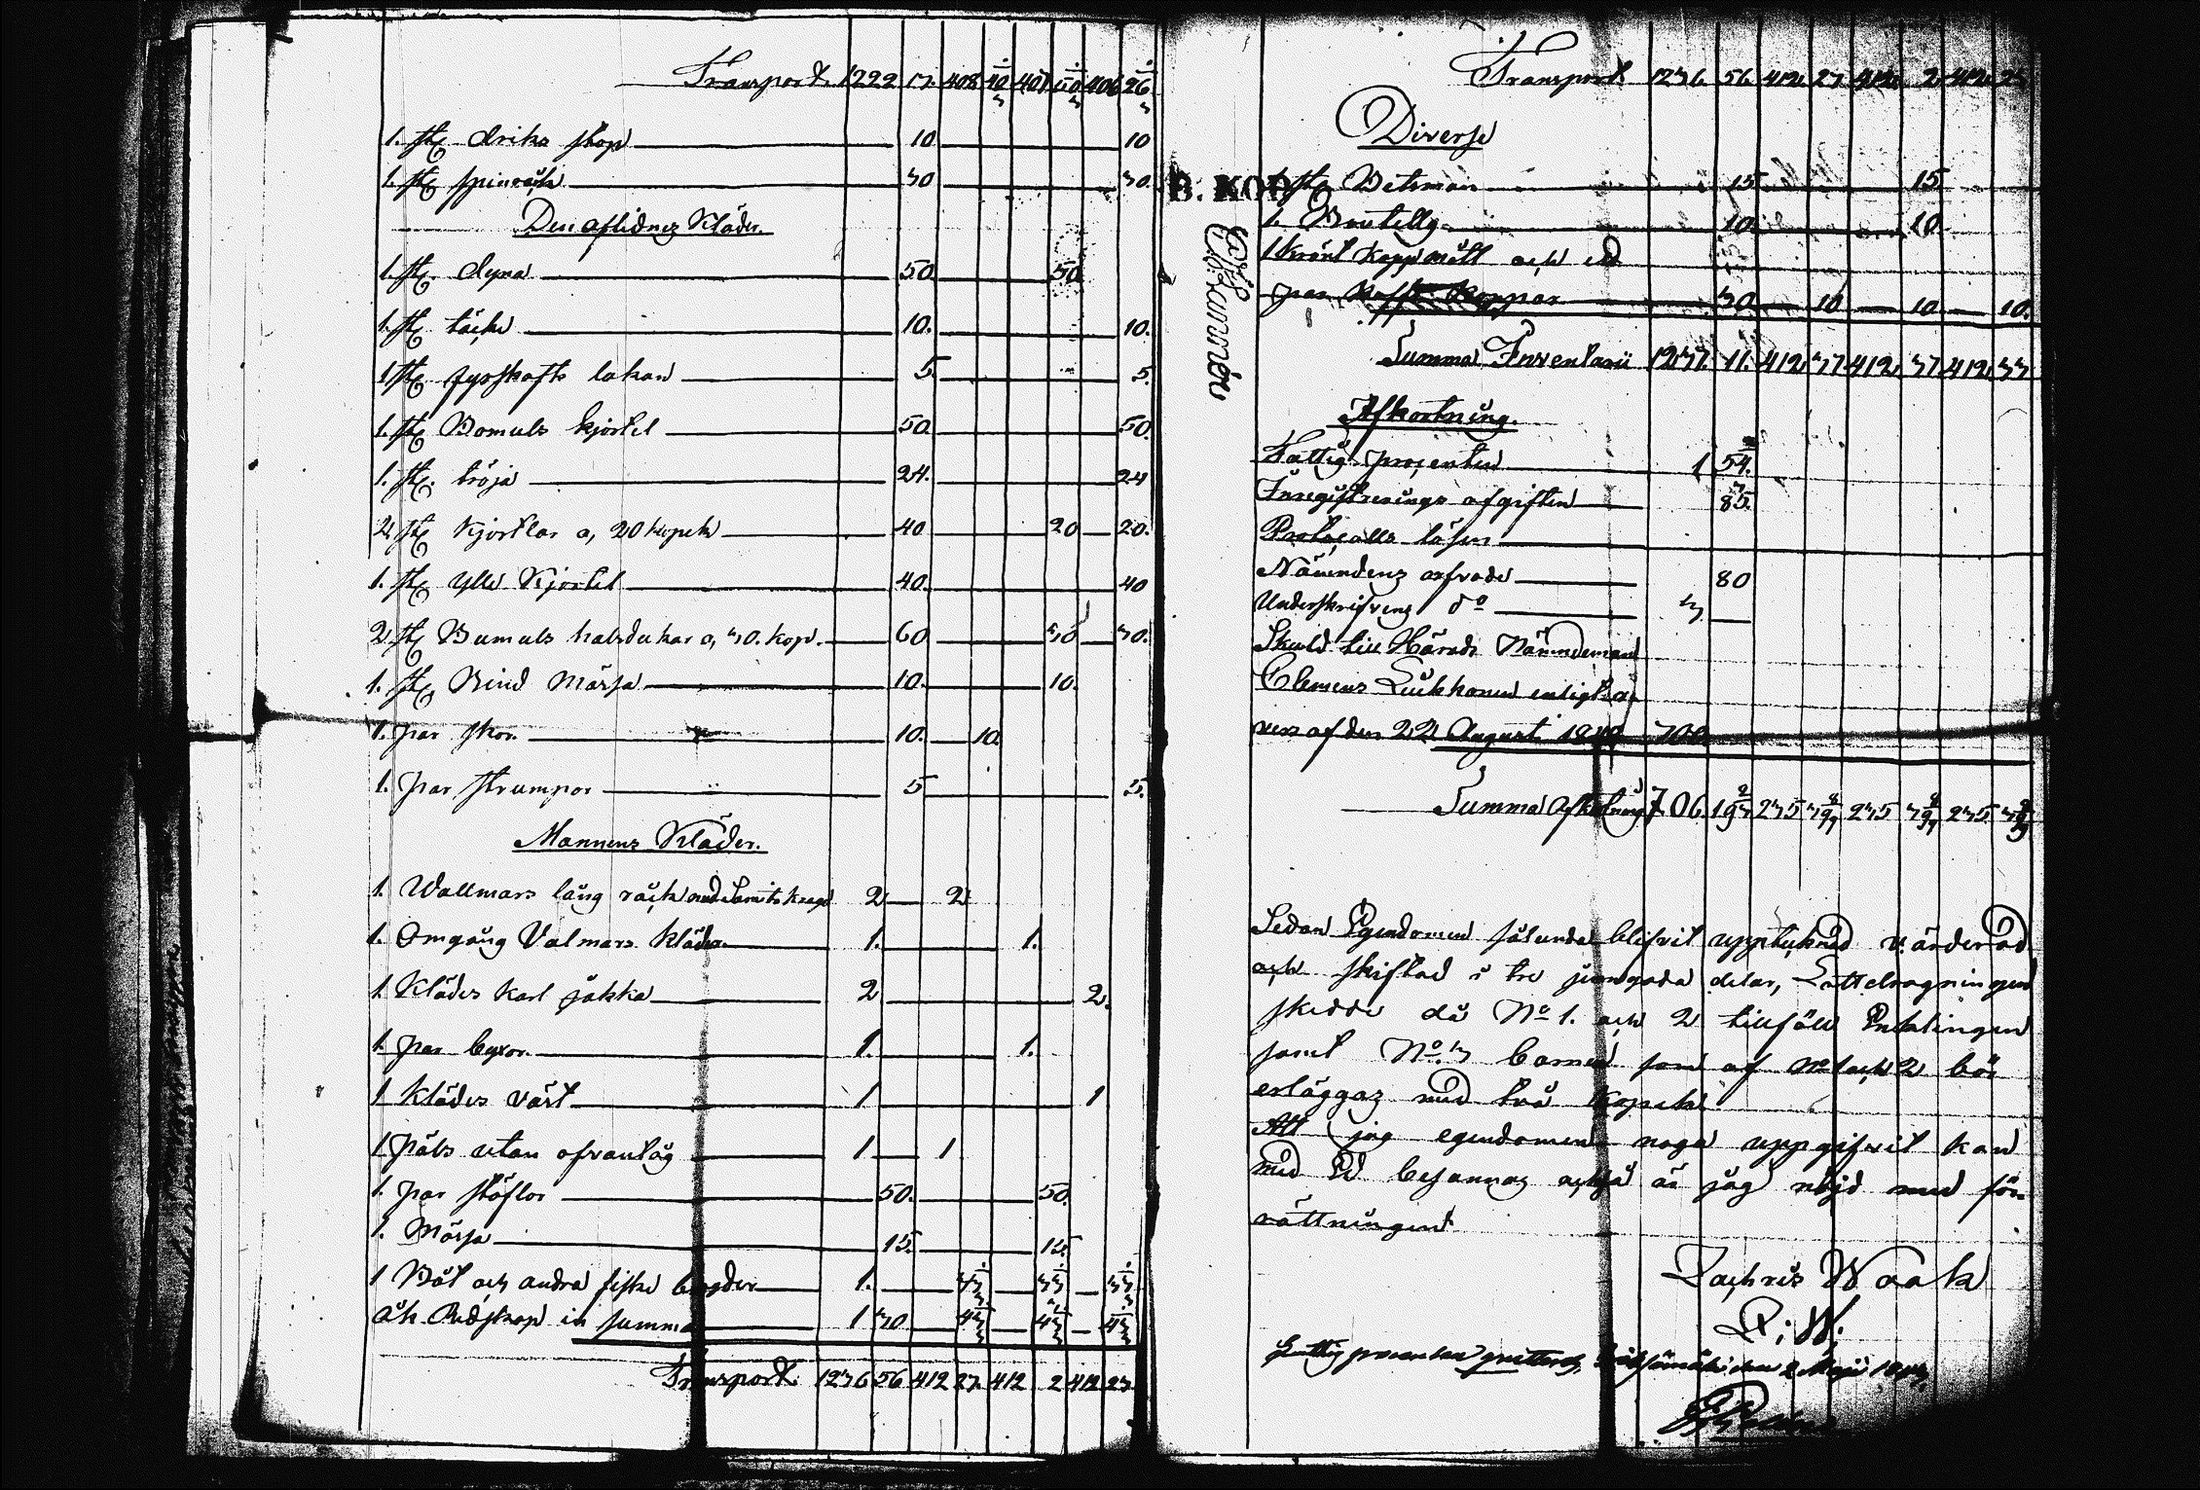 Transport 1222 17. 408 40 407 50 406 26
1. st driks skop 10 10
1. st spinråk 30 30.
Den aflidnes Kläder.
1. st. dyna 50 50
1. st täcke 10. 10.
1 st fyrskafts lakan 5. 5.
1. st Bomuls kjortel 50. 50.
1. st. tröja 24. 24
2. st Kjortlar a, 20 kopek 40 20 20.
1. st ylle Kjortel 40. 40
2. st Bumuls halsdukar a, 30. kop. 60 30 30.
1. st Bind Mössa 10. 10.
1. par skor. 10. 10.
1. par strumpor 5 5.
Mannens Kläder.
1. Wallmars lång råck med Samits krage 2 2
1. Omgång Valmars Kläder 1. 1.
1. Klädes Karl jakka 2 2.
1. par byxor. 1. 1.
1 Klädes väst 1 1
1 päls utan ofvantåg 1 1
1. par stöflor 50. 50.
1. Mössa 15. 15.
1 Båt och andra fiske bragder 1. 33 33 33
Åk Redskap in summa 1 30 43 43 43
Transport 1236 56 412 27. 412 2 412 27.
Transport 1236 56 412 27 412 2 412 27
Diverse
B. KOD
1 st Betsman 15 15
1. Boutellg 10. 10.
1 Krönt Kappmått och ett
par Kaffe Koppar 30 10 10 10.
Summa Inventarii 1237. 11. 412 37 412 37 412 37
Afkortning.
Fattig procenten 1 54.
Inregistrerings afgiften 85.
Protocolls lösen
Nämndens arfvode 80
Underskrifvens do 3
Skuld till Härads Nämndeman
Clemens enligt
vers af den 22 August 700
Summa Afkortning 706. 19 235 39 235 39 235 39
Sedan Egendomen sålunda blifvit upptecknad värderad
och skiftad i tre jemngoda delar, Lottdragningen
skedde då No 1. och 2 tillföll Enklingen
samt No. 3 barnen som af No 1 och 2 bör
erläggas med två kopek
Att jag egendomen noga uppgifvit kan
med Ed besannas också är jag nöjd med för-
rättningen
Zachris Waak
Z. W.
Fattig procenten qvitteras, den 2 Maji